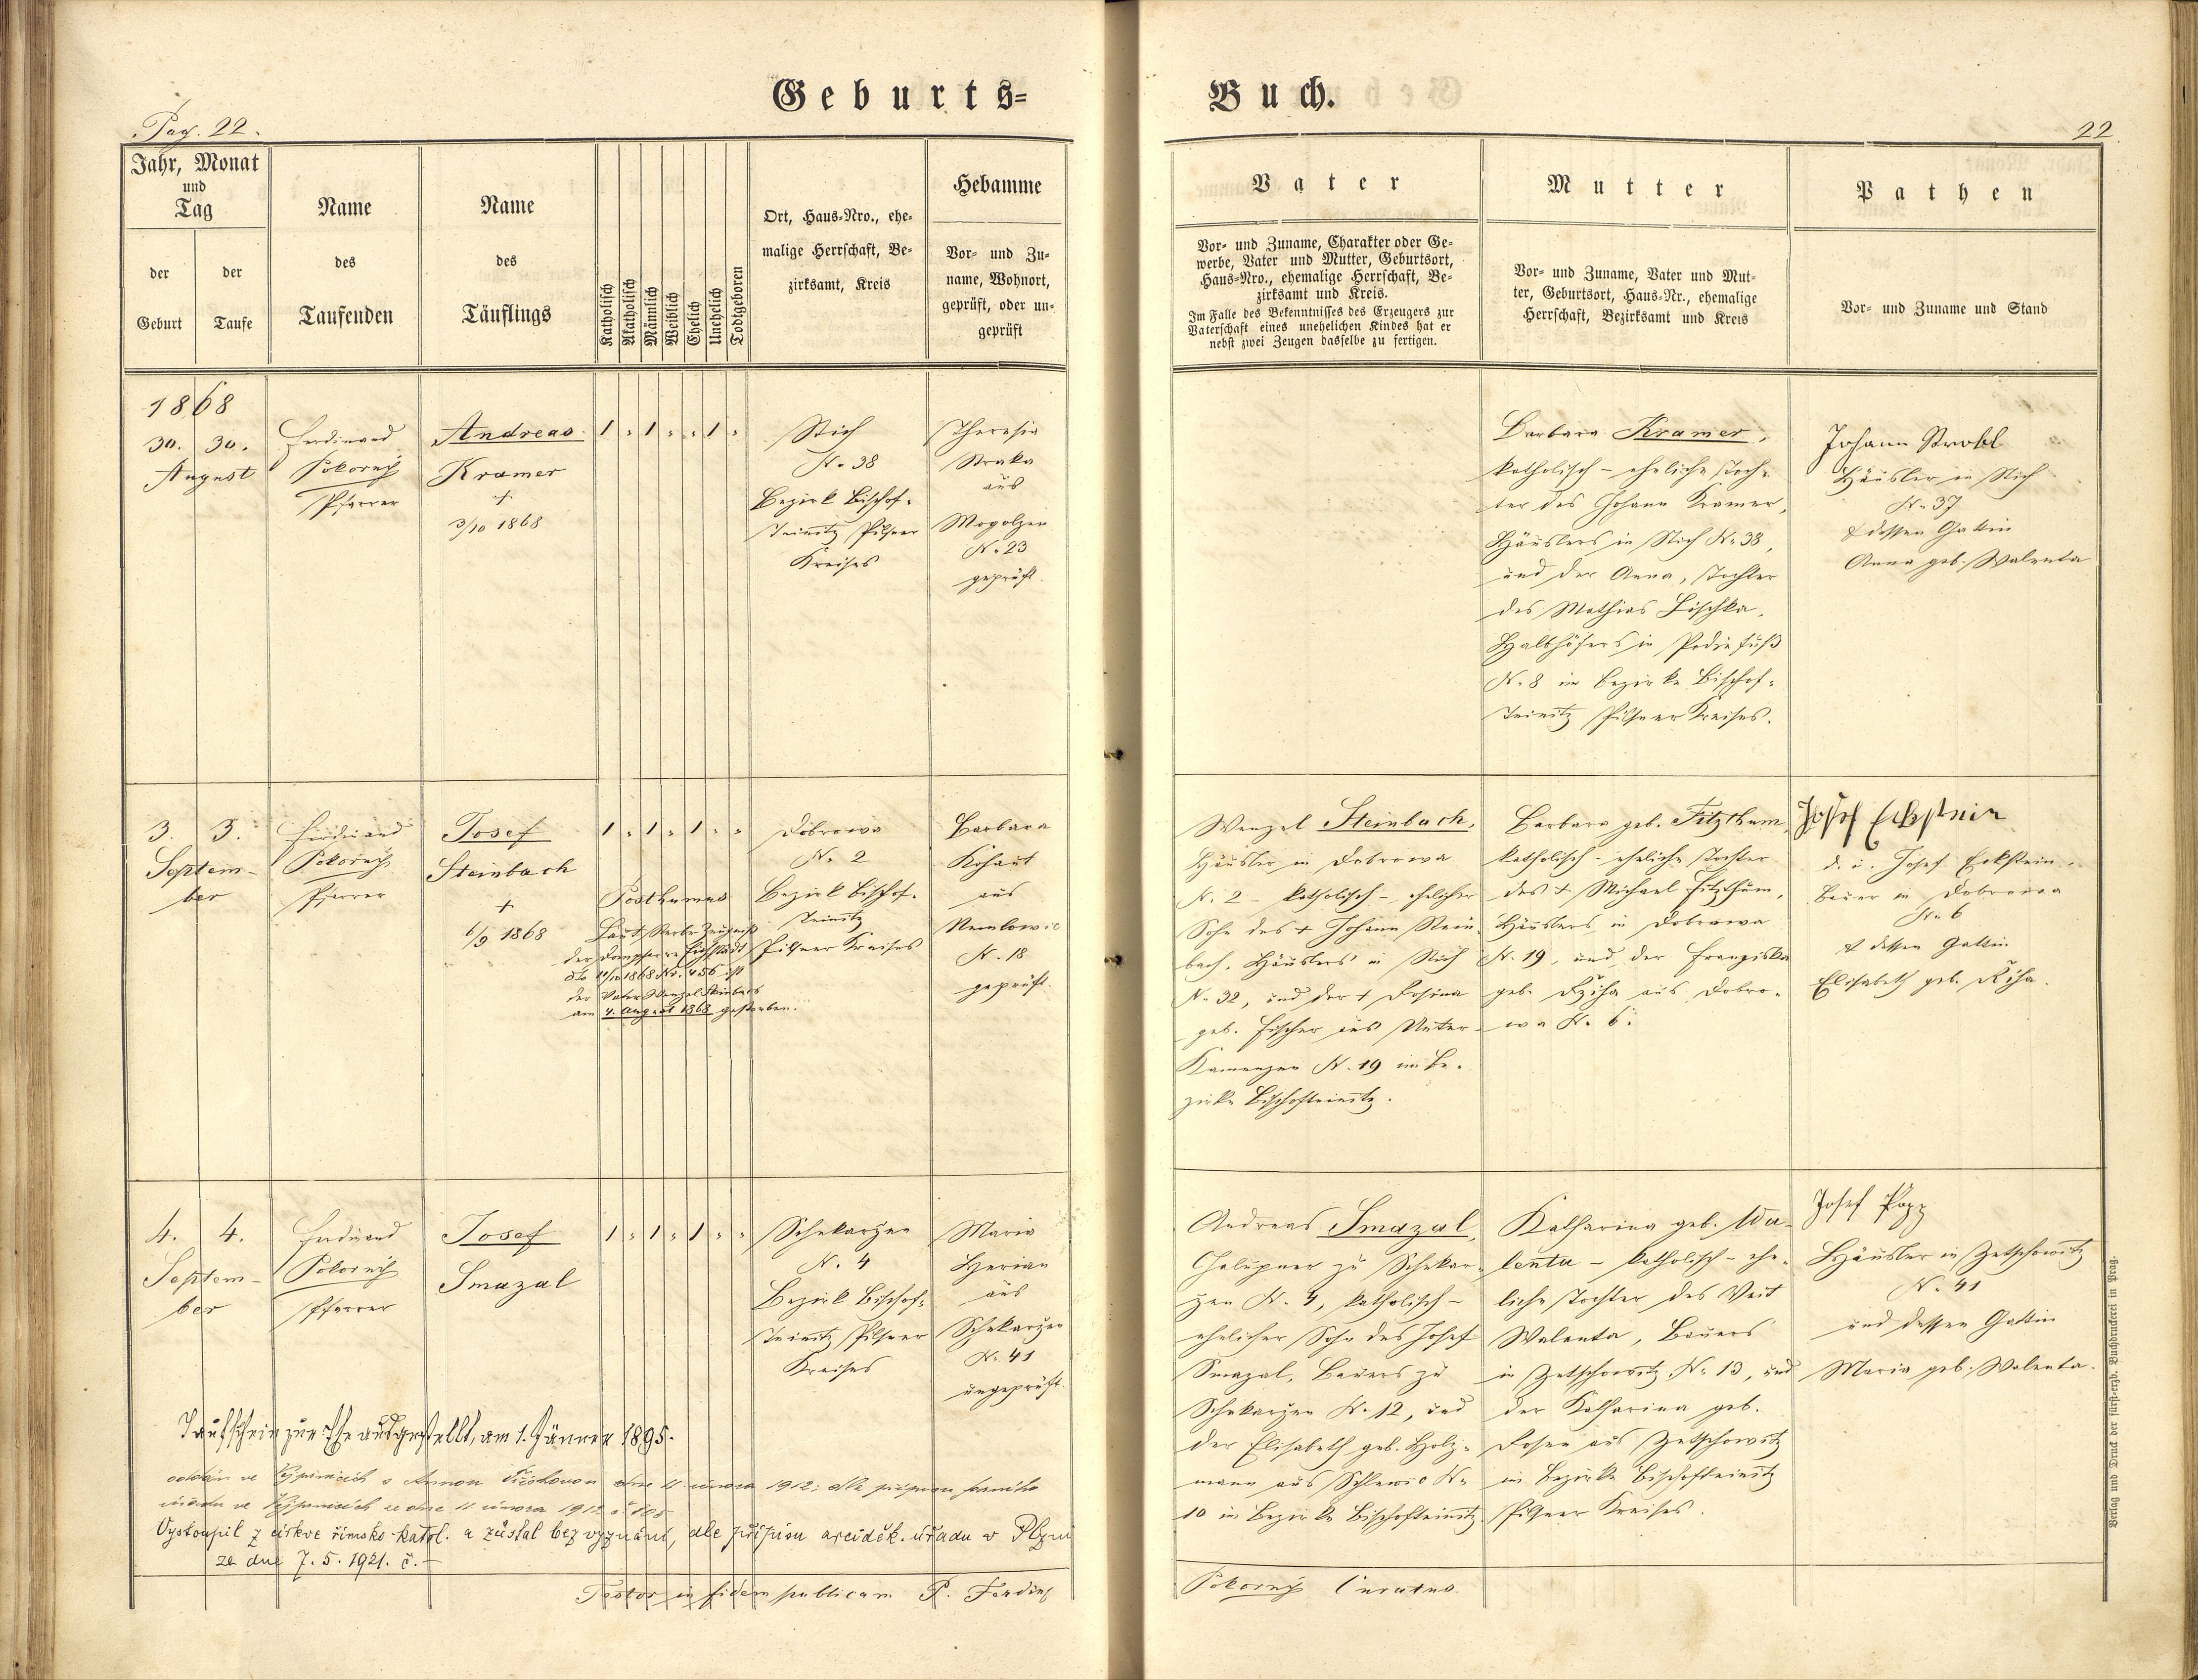 Geburts=
Buch.
Pag. 22.
22
Jahr, Monat
und
Tag
der
Geburt
der
Taufe
Name
des
Taufenden
Name
des
Täuflings
Katholisch
Akatholisch
Männlich
Weiblich
Ehelich
Unehelich
Todtgeboren
Ort, Haus=Nro., ehe=
malige Herrschaft, Be=
zirksamt, Kreis
Hebamme
Vor= und Zu=
name, Wohnort,
geprüft, oder un=
geprüft
Vater
Vor= und Zuname, Charakter oder Ge=
werbe, Vater und Mutter, Geburtsort,
Haus=Nro., ehemalige Herrschaft, Be=
zirksamt und Kreis.
Im Falle des Bekenntnisses des Erzeugers zur
Vaterschaft eines unehelichen Kindes hat er
nebst zwei Zeugen dasselbe zu fertigen.
Mutter
Vor= und Zuname, Vater und Mut=
ter, Geburtsort, Haus=Nr., ehemalige
Herrschaft, Bezirksamt und Kreis
Pathen
Vor= und Zuname und Stand
1868
30. 30.
August
Ferdinand
Pokorný
Pfarrer
Andreas
Kramer
+
3/10 1868
1 " 1 " " 1 "
Stich
N. 38
Bezirk Bischof=
Teinitz Pilsner
Kreises
Theresia
Straka
aus
Mogolzen
N. 23
geprüft.
Barbara Kramer,
katholisch – eheliche Toch=
ter des Johann Kramer,
Häuslers in Stich N. 38,
und der Anna, Tochter
des Mathias Lischka,
Halbhöfers in Podiefuß
N. 8 im Bezirke Bischof=
Teinitz Pilsner Kreises.
Johann Strobl
Häusler in Stich
N. 37
& dessen Gattin
Anna geb. Walenta
3. 3.
Septem-
ber
Ferdinand
Pokorný
Pfarrer
Josef
Steinbach
+
6/9 1868
1 " 1 " 1 " "
Posthumus
Laut Sterbe Zeugniß
der Dompfarre Eichstädt
dto 10/10 1868 Nr. 456 ist
der Vater Wenzel Steinbach
am 4. August 1868 gestorben.
Dobrowa
N. 2
Bezirk Bischof=
Teinitz
Pilsner Kreises
Barbara
Kohaut
aus
Nemlowic
N. 18
geprüft.
Wenzel Steinbach,
Häusler in Dobrowa
N. 2 – katholisch – ehelicher
Sohn des + Johann Stein=
bach, Häuslers in Stich
N. 32, und der + Rosina
geb. Fischer aus Unter=
Kamenzen N. 19 im Be=
zirke Bischofteinitz.
Barbara geb. Fitzthum,
katholisch – eheliche Tochter
des + Michael Fitzthum,
Häuslers in Dobrowa
N. 19, und der Franziska
geb. Rziha aus Dobro=
wa N. 6.
Josef Eckstein
d. i. Josef Eckstein
Bauer in Dobrowa
N. 6
& dessen Gattin
Elisabeth geb. Řiha.
4. 4.
Septem-
ber
Ferdinand
Pokorný
Pfarrer
Josef
Smazal
1 " 1 " 1 " "
Schekarzen
N. 4
Bezirk Bischof=
Teinitz Pilsner
Kreises
Maria
Herian
aus
Schekarzen
N. 41
ungeprüft.
Andreas Smazal,
Chalupner zu Schekar=
zen N. 4, katholisch –
ehelicher Sohn des Josef
Smazal, Bauers zu
Schekarzen N. 12, und
der Elisabeth geb. Holz=
mann aus Schlewic N.
10 in Bezirke Bischofteinitz
Katharina geb. Wa=
lenta – katholisch – ehe=
liche Tochter des Veit
Walenta, Bauers
in Zetschowitz N. 13, und
der Katharina geb.
Dosen aus Zetschowitz
im Bezirke Bischofteinitz
Pilsner Kreises.
Josef Popp
Häusler in Zetschowitz
N. 41
und dessen Gattin
Maria geb. Walenta.
Taufschein zur Ehe ausgestellt, am 1. Jänner 1895.
oddán ve Vejprnicích s Annou dne 11 února 1912; dle přípisu farního
úřadu ve Vejprnicích ze dne 11 února 1912 č. 105
Vystoupil z církve římsko-katol. a zůstal bez vyznání, dle přípisu arciděk. úřadu v Plzni
ze dne 7. 5. 1921. č. –
Testor in fidem publicam P. Ferdin
Pokorný Curatus.
Verlag und Druck der fürst=erzb. Buchdruckerei in Prag.